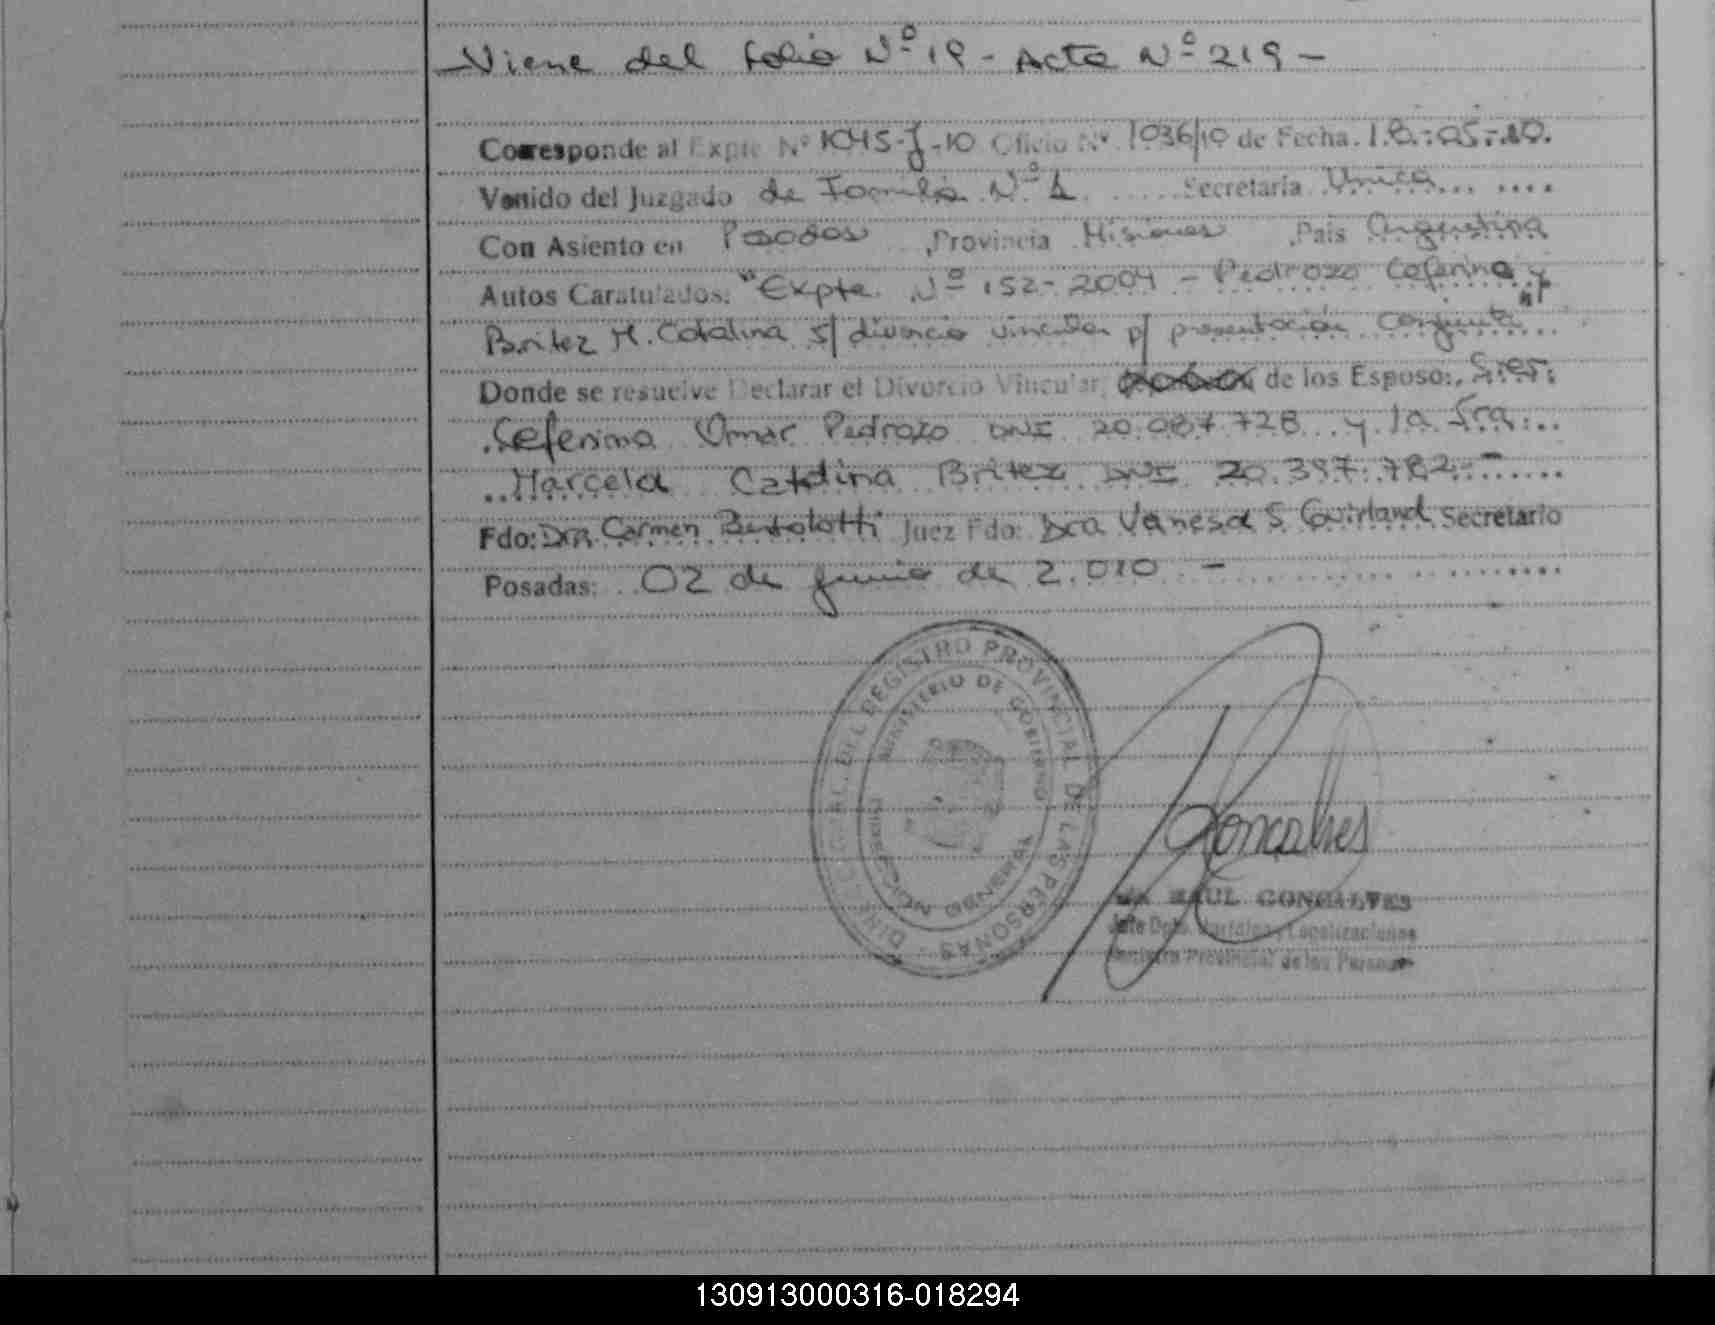 Viene del folio Nº 19 - Acta Nº 219 -
Corresponde al Expte Nº 1045-J-10 Oficio Nº. 1036/10 de Fecha. 18.-05.-10.
Venido del Juzgado de Familia Nº 1 Secretaria Unica
Con Asiento en Posadas ,Provincia Misiones ,Pais Argentina
Autos Caratulados: "Expte. Nº 152-2004 - Pedrozo Ceferino y
Britez M. Catalina s/ divorcio vincular p/ presentación conjunta"
Donde se resuelve Declarar el Divorcio Vincular, de los Esposo:, Sres.
Ceferino Omar Pedrozo DNI 20.087.728 y la Sra.
Marcela Catalina Britez DNI 20.397.782.-
Fdo: Dra. Carmen Bertolotti Juez Fdo: Dra Vanesa S. Guirland Secretario
Posadas: 02 de junio de 2.010 -
DIRECC. GRAL. DEL REGISTRO PROVINCIAL DE LAS PERSONAS
MINISTERIO DE GOBIERNO
DIRECCION GENERAL
Goncalves
RAUL GONCALVES
Jefe Dpto. y Legalizaciones
Registro Provincial de las Personas
130913000316-018294